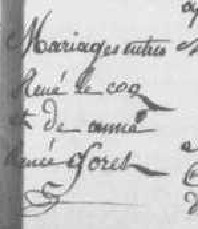 Mariages entre
René le coq
et de anne
renée Goret